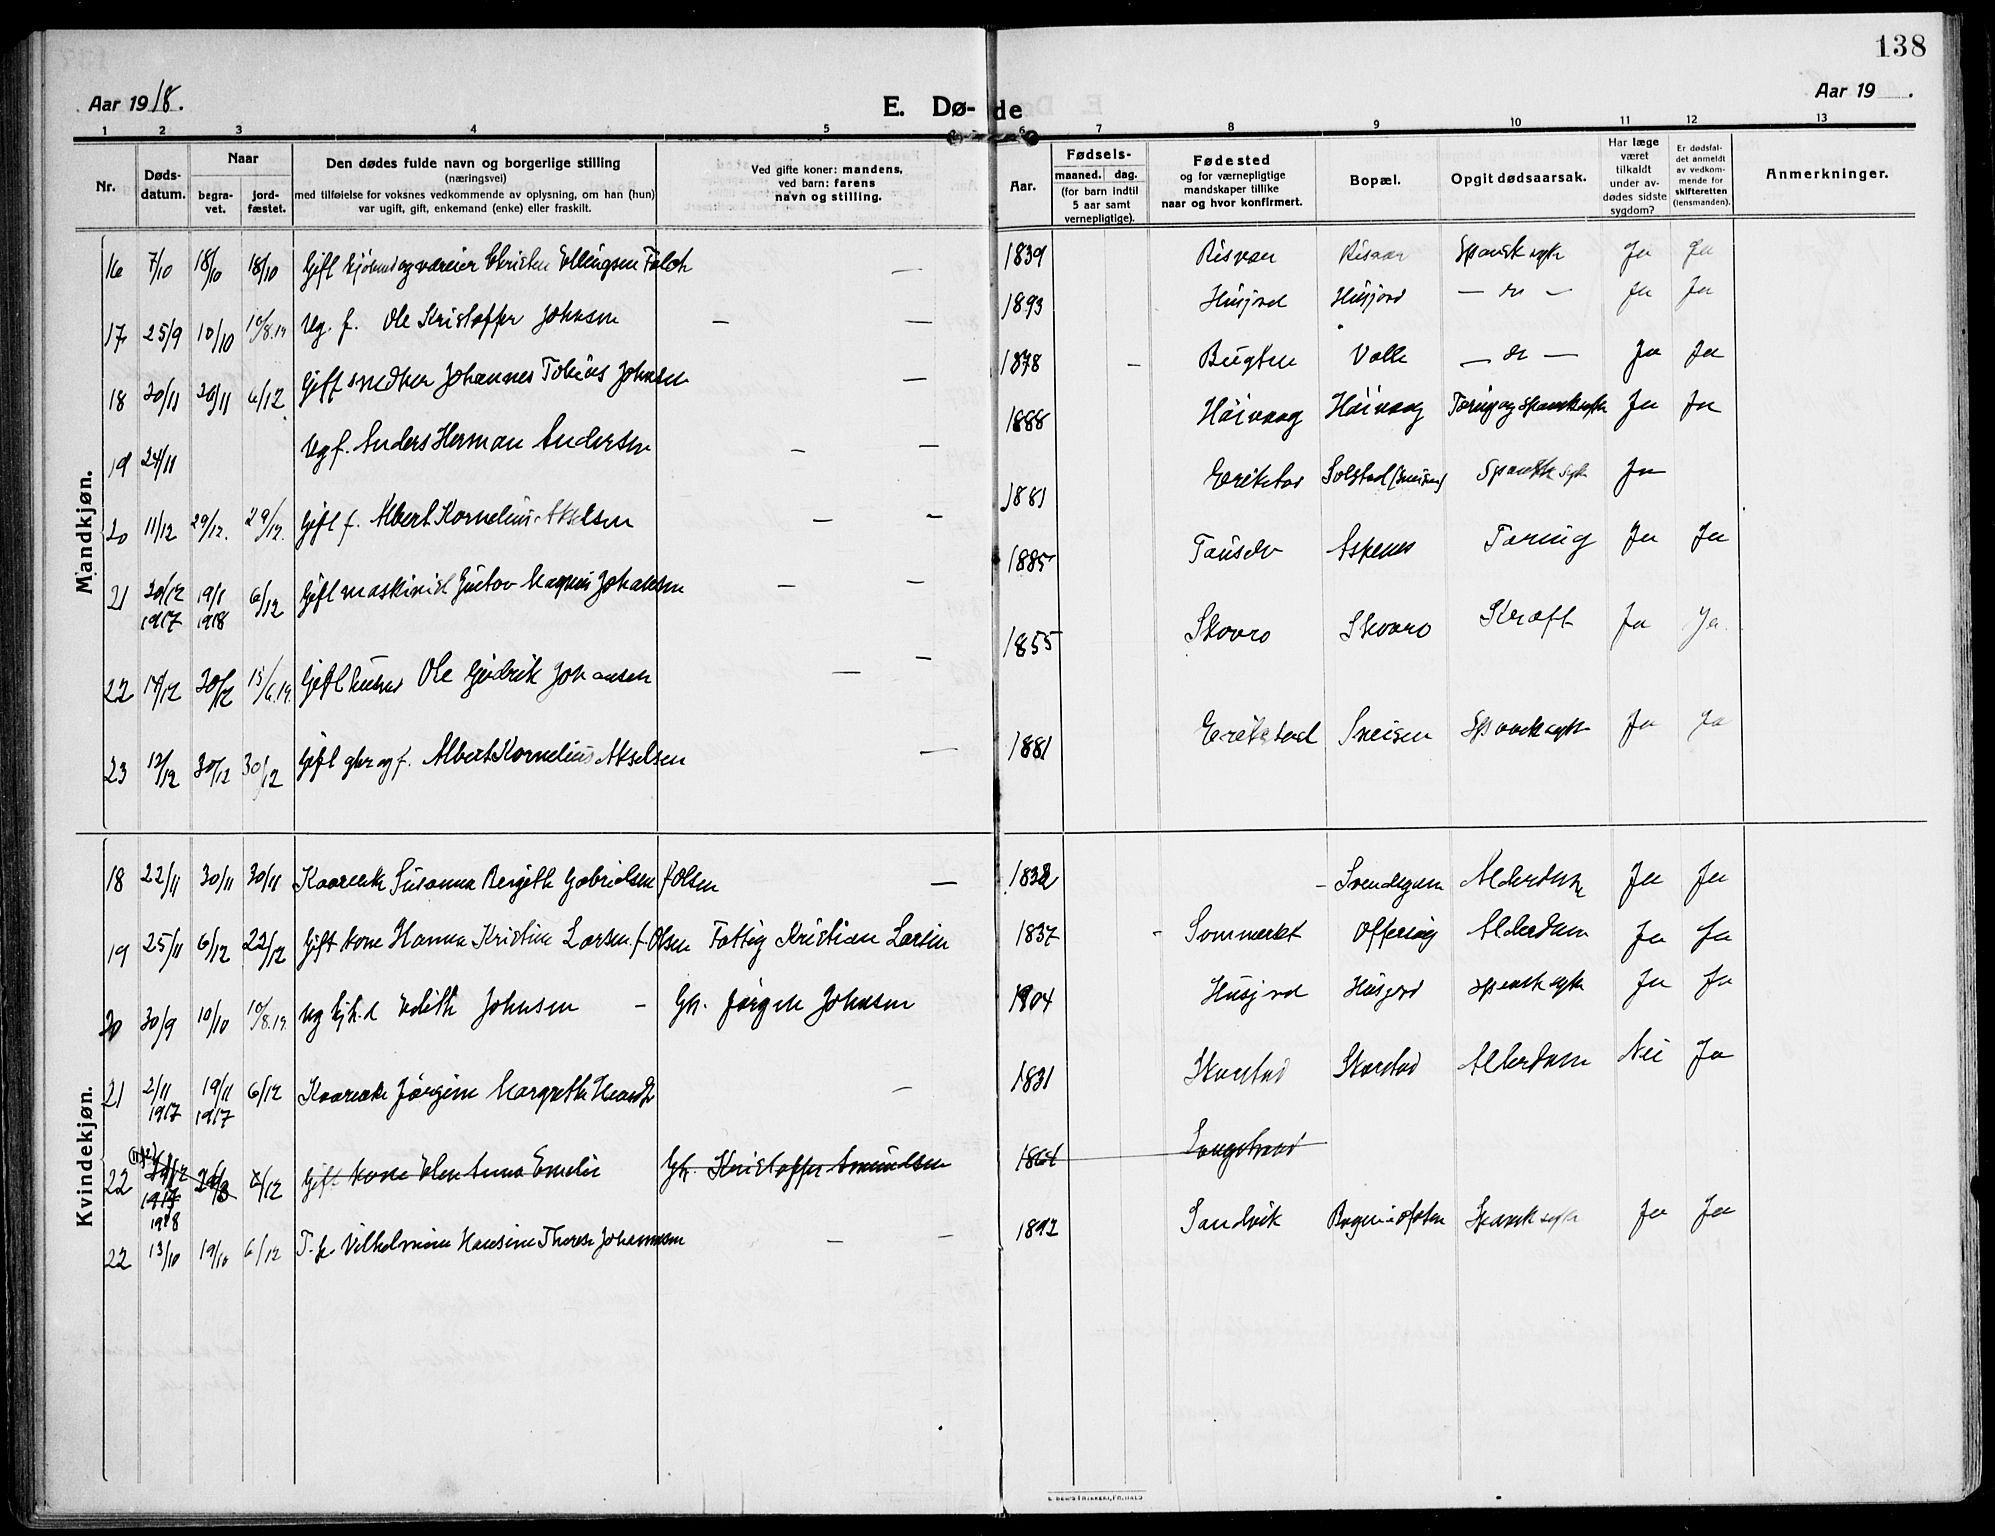 138
Aar 1918.
E. Dø- de
Aar 19 .
1 2 3 4 5 6 7 8 9 10 11 12 13
Nr.
Døds-datum.
Naar
begra-vet.
jord-fæstet.
Den dødes fulde navn og borgerlige stilling
(næringsvei)
med tilføielse for voksnes vedkommende av oplysning, om han (hun)
var ugift, gift, enkemand (enke) eller fraskilt.
Ved gifte koner: mandens,
ved barn: farens
navn og stilling.
Aar.
Fødsels-
maaned. dag.
(for barn indtil
5 aar samt
vernepligtige).
Fødested
og for værnepligtige
mandskaper tillike
naar og hvor konfirmert.
Bopæl.
Opgit dødsaarsak.
Har læge
været
tilkaldt
under av-
dødes sidste
sygdom?
Er dødsfal-
det anmeldt
av vedkom-
mende for
skifteretten
(lensmanden).
Anmerkninger.
Mandkjøn.
16 7/10 18/10 18/10 Gift Christen Ellingsen Falch — 1839 Risvær Risvær Spansk syke Ja Ja
17 25/9 10/10 10/8.19 Ug. f. Ole Kristoffer Johnsen — — 1893 Husjord Husjord — do — Ja Ja
18 20/11 29/11 6/12 Gift snedker Johannes Tobias Johnsen — 1878 — Bugten Valle — do — Ja Ja
19 24/11 Ug f. Anders Herman Andersen — — 1888 Høivaag Høivaag Tæring og spansk syke Ja Ja
20 11/12 29/12. 29/12. Gift f. Albert Kornelius Akselsen — — 1881 Erikstad Solstad Spansk syke Ja
21 20/12 1917 19/1 1918 6/12 Gift maskinist Gustav Magnus Johansen — — 1885 Aspenes Tæring Ja Ja
22 14/12 30/12 15/6.19. Gift Ole Johansen — — 1855 Skovro Skovro Kræft Ja Ja.
23 12/12 30/12 30/12 Gift gbr og f. Albert Kornelius Akselsen — 1881 Erikstad Sneisen Spansk syke Ja Ja
Kvindekjøn.
18 22/11 30/11 30/11 Kaarenke Susanna Bergitte Gabrielsen f. Olsen — 1832 — Alderdom Ja Ja
19 25/11 6/12 22/12 Gift kone Hanna Kristine Larsen f. Olsen Fattig Kristian Larsen 1837 - Sommerset Offersøy Alderdom Ja Ja
20 30/9 10/10 10/8.19. Ug Edith Johnsen — Gh. Jørgen Johnsen 1904 Husjord Husjord spansk syke Ja Ja
21 2/11 1917 19/11 1917 6/12 Kaarenke Jørgine Margrethe — 1831 Skarstad Skarstad Alderdom Nei Ja
22 1917 6/12 Gift kone Elen Anna Emelie Gh. Kristoffer Amundsen 1864
1918
22 13/10 19/10 6/12 Vilhelmine Hansine Therese Johannessen — — 1892 Sandvik Bogen i Ofoten Spansk syke Ja Ja